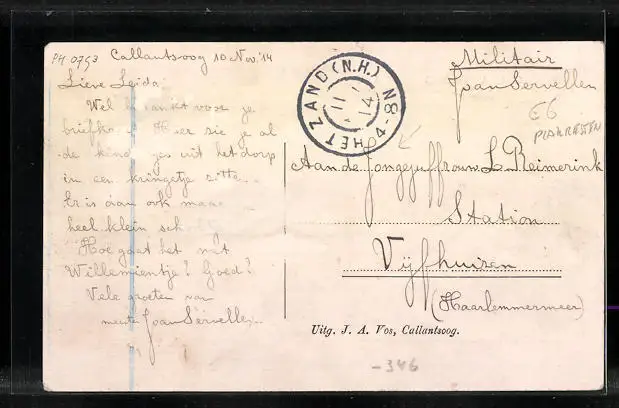 PH 0753 Callantsoog 10 Nov. '14
Lieve Leida.
Wel bedankt voor je
briefka Hier zie je al
de kind jes uit het dorp
in een kringetje zitten.
Er is aan ook maar
heel klein sch
Hoe gaat het met
Willemientje? Goed?
Vele groeten van
Joan Servellen.
HET ZAND (N.H.)
11
14
N 8-4
Militair
Joan Servellen
E6
Aan de Jongejuffrouw L. Reimerink
Station
Vijfhuizen
(Haarlemmermeer)
Uitg. J. A. Vos, Callantsoog.
-346